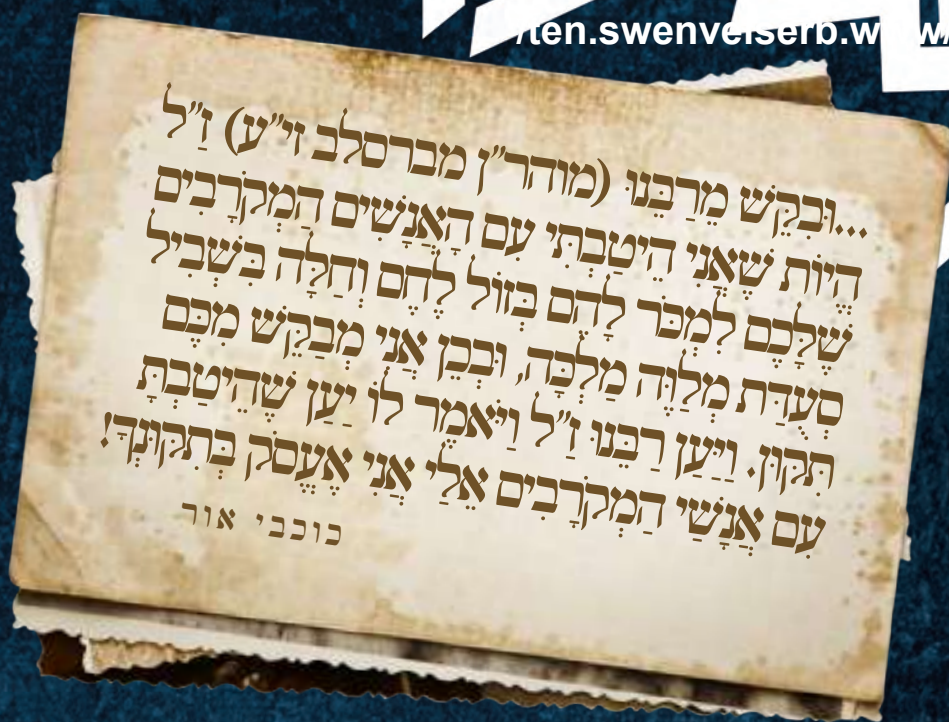 /ten.swenvelserb.w
...וּבִקֵּשׁ מֵרַבֵּנוּ (מוהר"ן מברסלב זי"ע) זַ"ל
הֱיוֹת שֶׁאֲנִי הֵיטַבְתִּי עִם הָאֲנָשִׁים הַמְקֹרָבִים
שֶׁלָּכֶם לִמְכֹּר לָהֶם בְּזוֹל לֶחֶם וְחַלָּה בִּשְׁבִיל
סְעֻדַּת מְלַוֶּה מַלְכָּה, וּבְכֵן אֲנִי מְבַקֵּשׁ מִכֶּם
תִּקּוּן. וַיַּעַן רַבֵּנוּ זַ"ל וַיֹּאמֶר לוֹ יַעַן שֶׁהֵיטַבְתָּ
עִם אֲנָשַׁי הַמְקֹרָבִים אֵלַי אֲנִי אֶעֱסֹק בְּתִקּוּנְךָ!
כוכבי אור